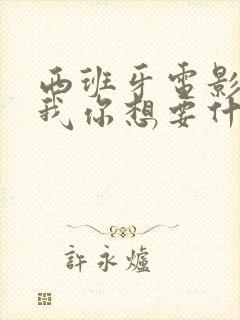 西班牙电影
我你想要什
許永爐